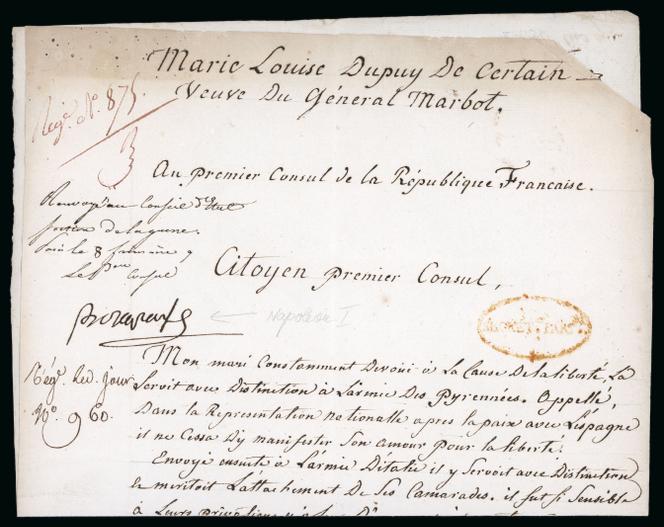 Marie Louise Dupuy De Certain
Veuve Du Général Marbot.
Regé. N°. 875.
3
Au Premier Consul de la République Francaise.
Renvoyé au Conseil d'Etat
section de la guerre.
le 8 frimaire 9
Le Per Consul
Citoyen Premier Consul,
Bonaparte
Napoleon I
Mon mari Constamment Devoué à La Cause De la liberté, L'a
Servit avec Distinction à L'armée Des Pyrennées. Appellé,
Dans la Représentation nationalle apres la paix avec L'espagne
il ne Cessa D'y manifester Son amour pour la liberté.
Régé. Red. Jour
N°. 960.
Envoyé ensuite à L'armée D'italie il y Servoit avec Distinction
et meritoit L'attachement De Ses Camarades. il fut Si Sensible
à Leurs privations